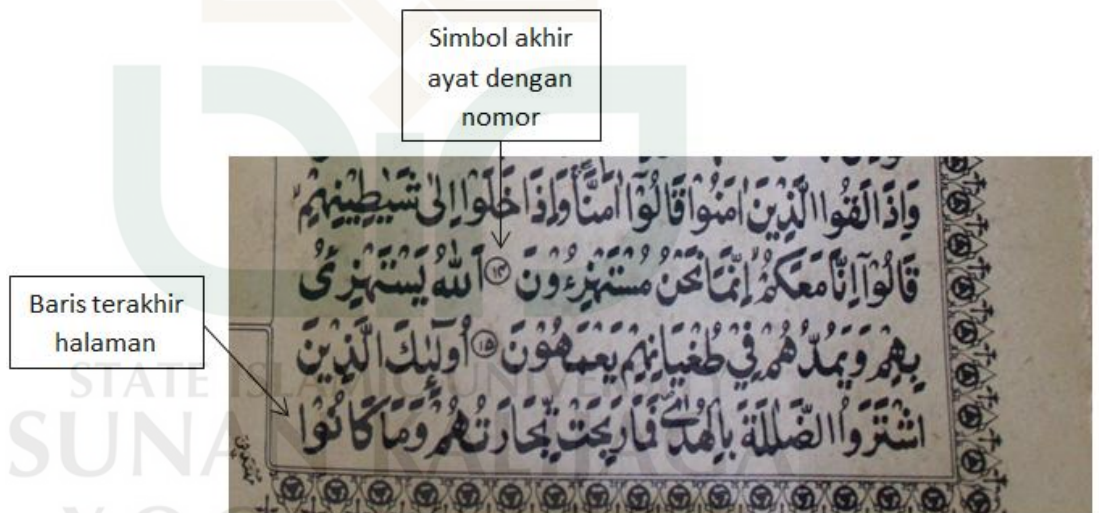 Simbol akhir
ayat dengan
nomor
وَاِذَا لَقُوا الَّذِيْنَ اٰمَنُوْا قَالُوْٓا اٰمَنَّا وَاِذَا خَلَوْا اِلٰى شَيٰطِيْنِهِمْ
قَالُوْٓا اِنَّا مَعَكُمْ اِنَّمَا نَحْنُ مُسْتَهْزِءُوْنَ ۝۱۴ اَللّٰهُ يَسْتَهْزِئُ
Baris terakhir
halaman
بِهِمْ وَيَمُدُّهُمْ فِيْ طُغْيَانِهِمْ يَعْمَهُوْنَ ۝۱۵ اُولٰٓئِكَ الَّذِيْنَ
اشْتَرَوُا الضَّلٰلَةَ بِالْهُدٰى فَمَا رَبِحَتْ تِّجَارَتُهُمْ وَمَا كَانُوْا
STATE ISLAMIC UNIVERSITY
SUNAN KALIJAGA